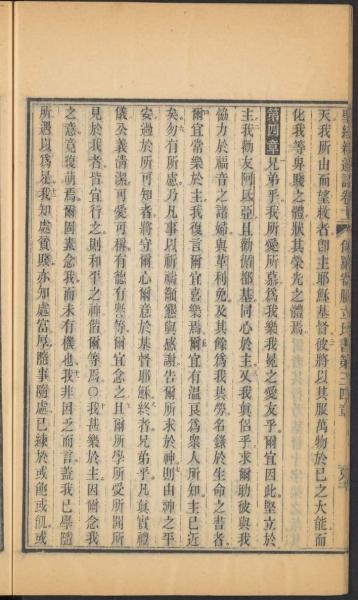 聖經新遺詔卷十 使徒者保羅立比書第三四章
天我所由而望救者即主耶穌基督彼將以其服萬物於己之大能而
化我等卑賤之體狀其榮光之體焉
第四章 兄弟乎我所愛所慕爲我樂我冕之愛友乎爾宜因此堅立於
主我勸友阿氐亞且勸循都基同心於主又我真侶乎求爾助彼與我
協力於福音之諸婦與革利免及其餘爲我共勞名錄於生命之書者
爾宜常樂於主我復言爾宜喜樂焉爾宜有溫良爲衆人所知主已近
矣勿有所慮乃凡事以祈禱籲懇與感謝告爾所求於神則由神之平
安過於所可知者將守爾心爾意於基督耶穌終者兄弟乎凡真實禮
儀公義清潔可愛可稱有德有譽等爾宜念之且爾所學所受所聞所
見於我者皆宜行之則和平之神偕爾等焉○我甚樂於主因爾念我
之意竟復萌焉爾固素念我而未有機也我非因乏而言蓋我已學隨
所遇以爲足我知處貧賤亦知處富厚隨事隨處已練於或飽或飢或